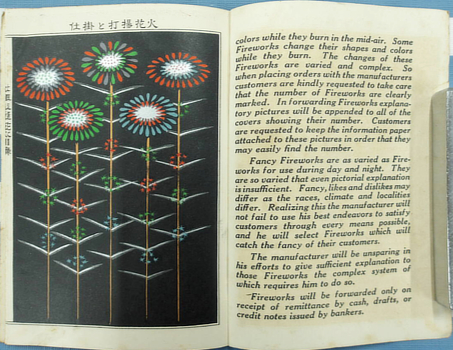 仕掛と打揚花火
colors while they burn in the mid-air. Some
Fireworks change their shapes and colors
while they burn. The changes of these
Fireworks are varied and complex. So
when placing orders with the manufacturers
customers are kindly requested to take care
that the number of Fireworks are clearly
marked. In forwarding Fireworks explana-
tory pictures will be appended to all of the
covers showing their number. Customers
are requested to keep the information paper
attached to these pictures in order that they
may easily find the number.
Fancy Fireworks are as varied as Fire-
works for use during day and night. They
are so varied that even pictorial explanation
is insufficient. Fancy, likes and dislikes may
differ as the races, climate and localities
differ. Realizing this the manufacturer will
not fail to use his best endeavors to satisfy
customers through every means possible,
and he will select Fireworks which will
catch the fancy of their customers.
The manufacturer will be unsparing in
his efforts to give sufficient explanation to
those Fireworks the complex system of
which requires him to do so.
Fireworks will be forwarded only on
receipt of remittance by cash, drafts, or
credit notes issued by bankers.